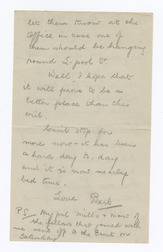 let them know at the
office in case one of
them should be hanging
round L.pool St.
Well, I hope that
it will prove to be a
better place than this
will.
Can't stop for
more now & it has been
a hard day to-day
and it is now nearly
bed time.
Love
P.S. My pal Mill & most of
the fellows that joined with
me, went off to the Front on
Saturday